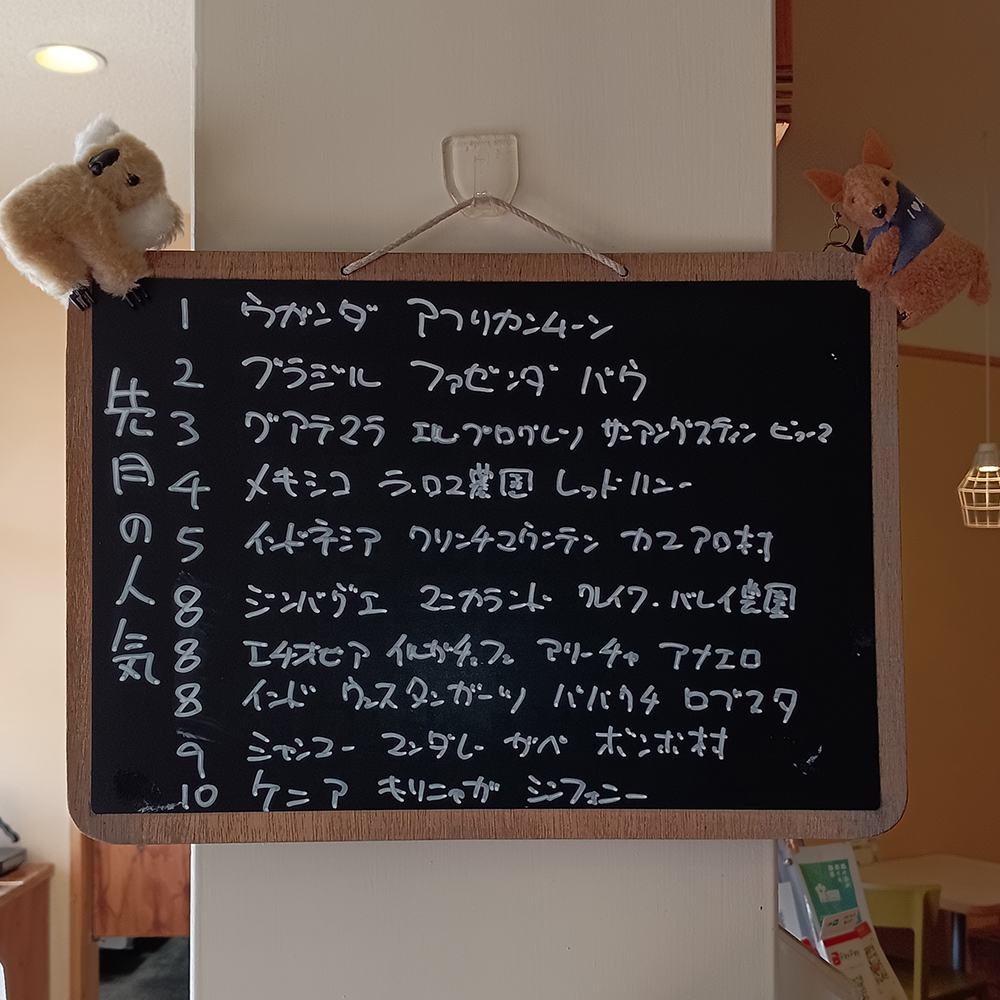 先月の人気
1 ウガンダ アフリカンムーン
2 ブラジル ファゼンダ バウ
3 グアテマラ エル・プログレソ サンアングスティン ピュース
4 メキシコ ラ・ロマ農園 レッドハニー
5 インドネシア クリンチマウンテン カユアロ村
8 ジンバブエ マニカランド クレイワ・バレイ農園
8 エチオピア イルガチェフェ アリーチャ アナエロ
8 インド ウェスタンガーツ ババウチ ロブスタ
9 ミャンマー マンダレー ガペ ボンボ村
10 ケニア キリニャガ シンフォニー